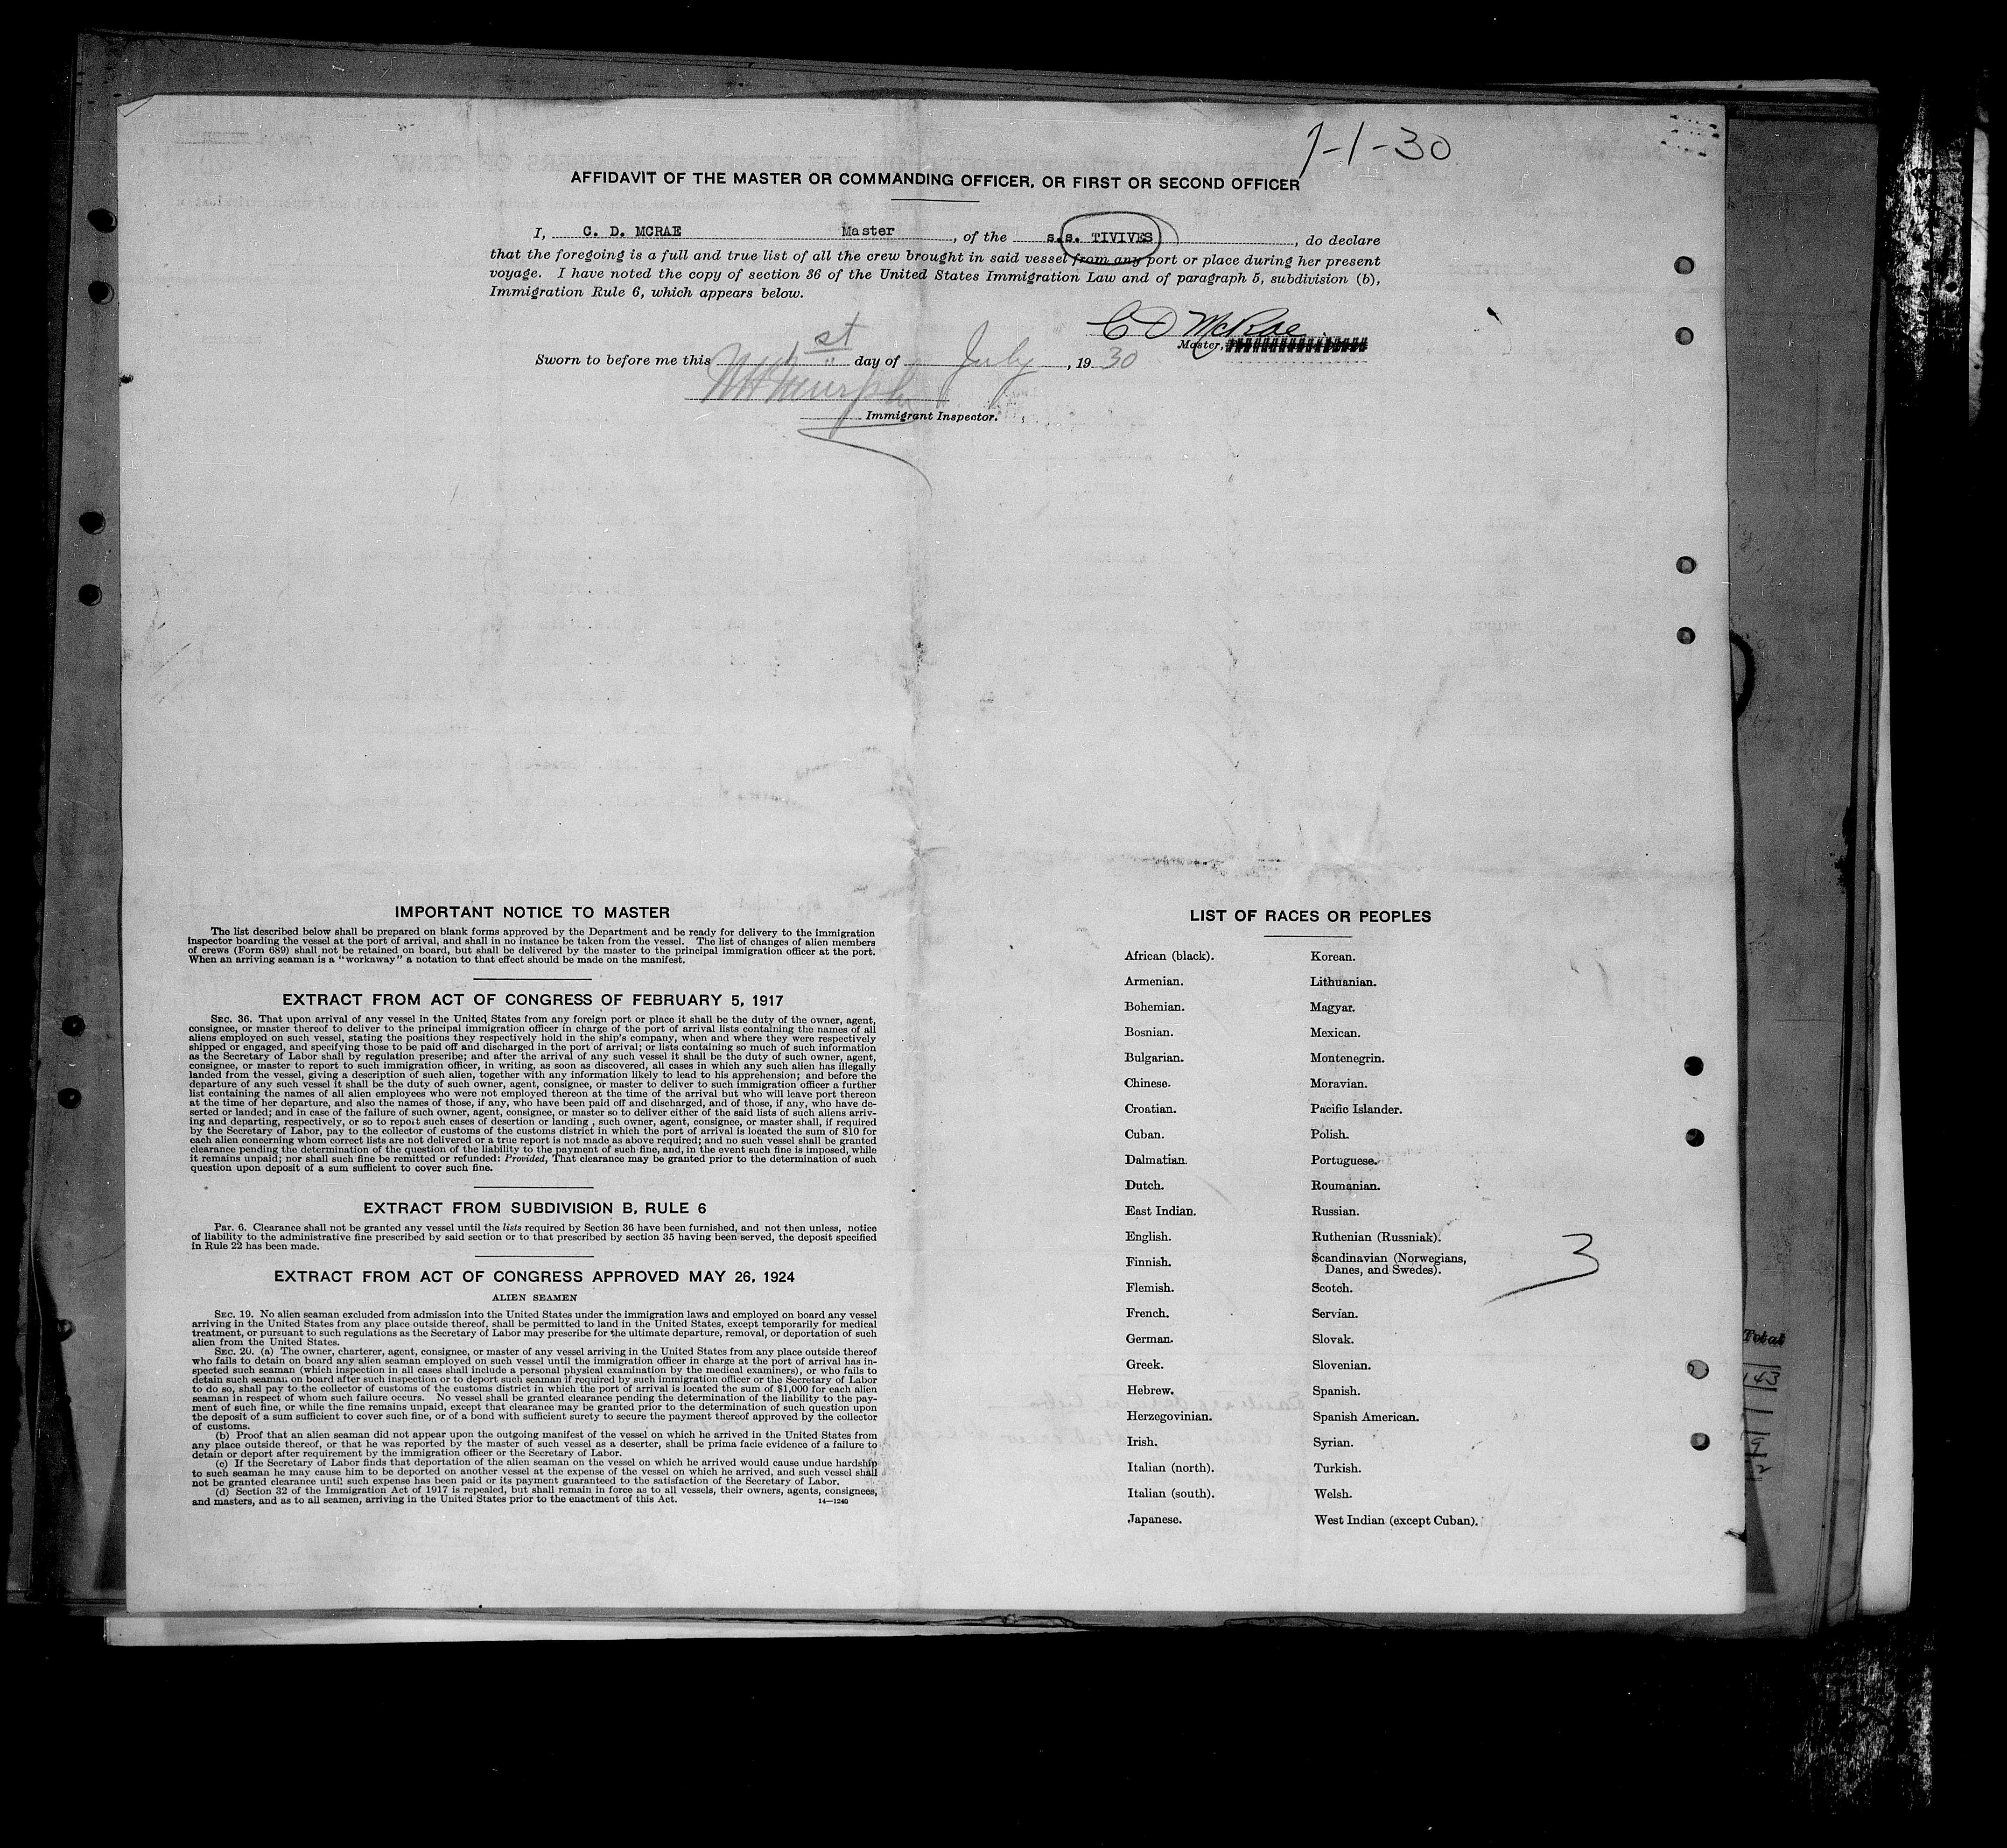 7-1-30
AFFIDAVIT OF THE MASTER OR COMMANDING OFFICER, OR FIRST OR SECOND OFFICER
I, C. D. MCRAE Master, of the s.s. TIVIVES, do declare
that the foregoing is a full and true list of all the crew brought in said vessel from any port or place during her present
voyage. I have noted the copy of section 36 of the United States Immigration Law and of paragraph 5, subdivision (b),
Immigration Rule 6, which appears below.
C D McRae
Master,
Sworn to before me this st day of July, 1930
Murphy
Immigrant Inspector.
IMPORTANT NOTICE TO MASTER
The list described below shall be prepared on blank forms approved by the Department and be ready for delivery to the immigration
inspector boarding the vessel at the port of arrival, and shall in no instance be taken from the vessel. The list of changes of alien members
of crews (Form 689) shall not be retained on board, but shall be delivered by the master to the principal immigration officer at the port.
When an arriving seaman is a "workaway" a notation to that effect should be made on the manifest.
EXTRACT FROM ACT OF CONGRESS OF FEBRUARY 5, 1917
SEC. 36. That upon arrival of any vessel in the United States from any foreign port or place it shall be the duty of the owner, agent,
consignee, or master thereof to deliver to the principal immigration officer in charge of the port of arrival lists containing the names of all
aliens employed on such vessel, stating the positions they respectively hold in the ship's company, when and where they were respectively
shipped or engaged, and specifying those to be paid off and discharged in the port of arrival; or lists containing so much of such information
as the Secretary of Labor shall by regulation prescribe; and after the arrival of any such vessel it shall be the duty of such owner, agent,
consignee, or master to report to such immigration officer, in writing, as soon as discovered, all cases in which any such alien has illegally
landed from the vessel, giving a description of such alien, together with any information likely to lead to his apprehension; and before the
departure of any such vessel it shall be the duty of such owner, agent, consignee, or master to deliver to such immigration officer a further
list containing the names of all alien employees who were not employed thereon at the time of the arrival but who will leave port thereon
at the time of her departure, and also the names of those, if any, who have been paid off and discharged, and of those, if any, who have de-
serted or landed; and in case of the failure of such owner, agent, consignee, or master so to deliver either of the said lists of such aliens arriv-
ing and departing, respectively, or so to report such cases of desertion or landing , such owner, agent, consignee, or master shall, if required
by the Secretary of Labor, pay to the collector of customs of the customs district in which the port of arrival is located the sum of $10 for
each alien concerning whom correct lists are not delivered or a true report is not made as above required; and no such vessel shall be granted
clearance pending the determination of the question of the liability to the payment of such fine, and, in the event such fine is imposed, while
it remains unpaid; nor shall such fine be remitted or refunded: Provided, That clearance may be granted prior to the determination of such
question upon deposit of a sum sufficient to cover such fine.
EXTRACT FROM SUBDIVISION B, RULE 6
Par. 6. Clearance shall not be granted any vessel until the lists required by Section 36 have been furnished, and not then unless, notice
of liability to the administrative fine prescribed by said section or to that prescribed by section 35 having been served, the deposit specified
in Rule 22 has been made.
EXTRACT FROM ACT OF CONGRESS APPROVED MAY 26, 1924
ALIEN SEAMEN
SEC. 19. No alien seaman excluded from admission into the United States under the immigration laws and employed on board any vessel
arriving in the United States from any place outside thereof, shall be permitted to land in the United States, except temporarily for medical
treatment, or pursuant to such regulations as the Secretary of Labor may prescribe for the ultimate departure, removal, or deportation of such
alien from the United States.
SEC. 20. (a) The owner, charterer, agent, consignee, or master of any vessel arriving in the United States from any place outside thereof
who fails to detain on board any alien seaman employed on such vessel until the immigration officer in charge at the port of arrival has in-
spected such seaman (which inspection in all cases shall include a personal physical examination by the medical examiners), or who fails to
detain such seaman on board after such inspection or to deport such seaman if required by such immigration officer or the Secretary of Labor
to do so, shall pay to the collector of customs of the customs district in which the port of arrival is located the sum of $1,000 for each alien
seaman in respect of whom such failure occurs. No vessel shall be granted clearance pending the determination of the liability to the pay-
ment of such fine, or while the fine remains unpaid, except that clearance may be granted prior to the determination of such question upon
the deposit of a sum sufficient to cover such fine, or of a bond with sufficient surety to secure the payment thereof approved by the collector
of customs.
(b) Proof that an alien seaman did not appear upon the outgoing manifest of the vessel on which he arrived in the United States from
any place outside thereof, or that he was reported by the master of such vessel as a deserter, shall be prima facie evidence of a failure to
detain or deport after requirement by the immigration officer or the Secretary of Labor.
(c) If the Secretary of Labor finds that deportation of the alien seaman on the vessel on which he arrived would cause undue hardship
to such seaman he may cause him to be deported on another vessel at the expense of the vessel on which he arrived, and such vessel shall
not be granted clearance until such expense has been paid or its payment guaranteed to the satisfaction of the Secretary of Labor.
(d) Section 32 of the Immigration Act of 1917 is repealed, but shall remain in force as to all vessels, their owners, agents, consignees,
and masters, and as to all seamen, arriving in the United States prior to the enactment of this Act.
14—1240
LIST OF RACES OR PEOPLES
African (black).
Armenian.
Bohemian.
Bosnian.
Bulgarian.
Chinese.
Croatian.
Cuban.
Dalmatian.
Dutch.
East Indian.
English.
Finnish.
Flemish.
French.
German.
Greek.
Hebrew.
Herzegovinian.
Irish.
Italian (north).
Italian (south).
Japanese.
Korean.
Lithuanian.
Magyar.
Mexican.
Montenegrin.
Moravian.
Pacific Islander.
Polish.
Portuguese.
Roumanian.
Russian.
Ruthenian (Russniak).
Scandinavian (Norwegians,
Danes, and Swedes).
Scotch.
Servian.
Slovak.
Slovenian.
Spanish.
Spanish American.
Syrian.
Turkish.
Welsh.
West Indian (except Cuban).
3
Total
143
9
2